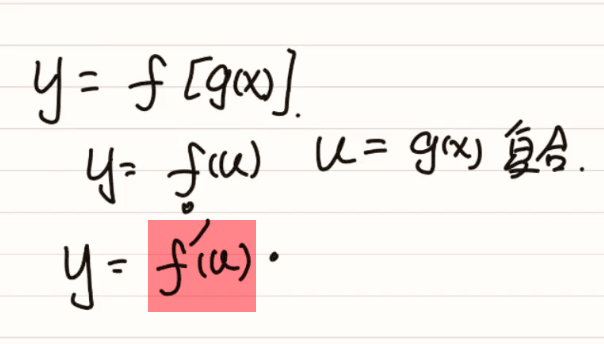 y = f[g(x)].
y = f(u) u = g(x) 复合.
y = f'(u) ·